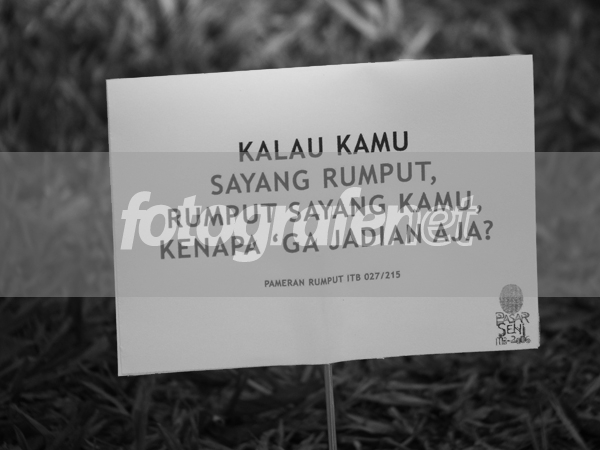 KALAU KAMU
SAYANG RUMPUT,
RUMPUT SAYANG KAMU,
KENAPA ‘GA JADIAN AJA?
fotografer.net
PAMERAN RUMPUT ITB 027/215
PASAR
SENI
ITB-2006